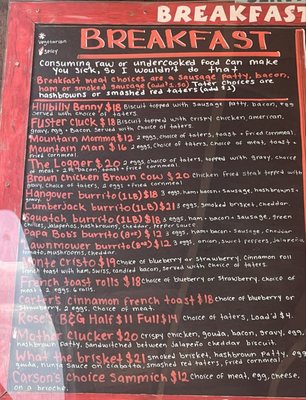 BREAKFAST
Vegetarian
Spicy
BREAKFAST
Consuming raw or undercooked food can make
you sick, so I wouldn't do that
Breakfast meat choices are a sausage patty, bacon,
ham or smoked sausage Tater choices are
hashbrowns or smashed red taters (add $1)
Hillbilly Benny $18 Biscuit topped with sausage patty, bacon, egg
Served with choice of taters.
Fuster Cluck $18 Biscuit topped with crispy chicken, american,
gravy, egg + bacon. Served with choice of taters.
Mountain Momma $12 2 eggs, choice of taters, toast + fried cornmeal.
Mountain Man $16 2 eggs, choice of taters, choice of meat, toast +
fried cornmeal.
The Logger $20 2 eggs, choice of taters, topped with gravy, choice
of meat + 2 bacon, toast + fried cornmeal
Brown Chicken Brown Cow $20 chicken fried steak topped with
gravy, choice of taters, 2 eggs + fried cornmeal
Hangover burrito (1LB) $18 3 eggs, ham, bacon, sausage, hashbrowns +
gravy
Lumberjack burrito (1LB) $21 3 eggs, smoked brisket, cheddar,
Squatch burrito (1LB) $18 3 eggs, ham + bacon + sausage, green
chilies, jalapeños, hashbrowns, cheddar, pepper sauce
Papa Bob's burrito $12 3 eggs, ham + bacon + sausage, cheddar
Lawnmower burrito $12 3 eggs, onion, sweet peppers, jalapeño
tomato, mushrooms, cheddar.
Monte Cristo $19 choice of blueberry or strawberry, cinnamon roll
french toast with ham, swiss, candied bacon, served with choice of taters.
French toast rolls $18 choice of blueberry or strawberry, choice of
meat + 2 eggs
Carter's cinnamon french toast $18 choice of blueberry or
strawberry, 2 eggs, choice of meat.
Rose's B&G Half $11 Full $14 choice of taters, Load'd $4.
Mother Clucker $20 crispy chicken, gouda, bacon, gravy, egg,
hashbrown patty, sandwiched between jalapeño cheddar biscuit.
What the brisket $21 smoked brisket, hashbrown patty, egg
gouda, ninja sauce on ciabatta, smashed red taters, fried cornmeal
Carson's choice Sammich $12 choice of meat, egg, cheese,
on a brioche.